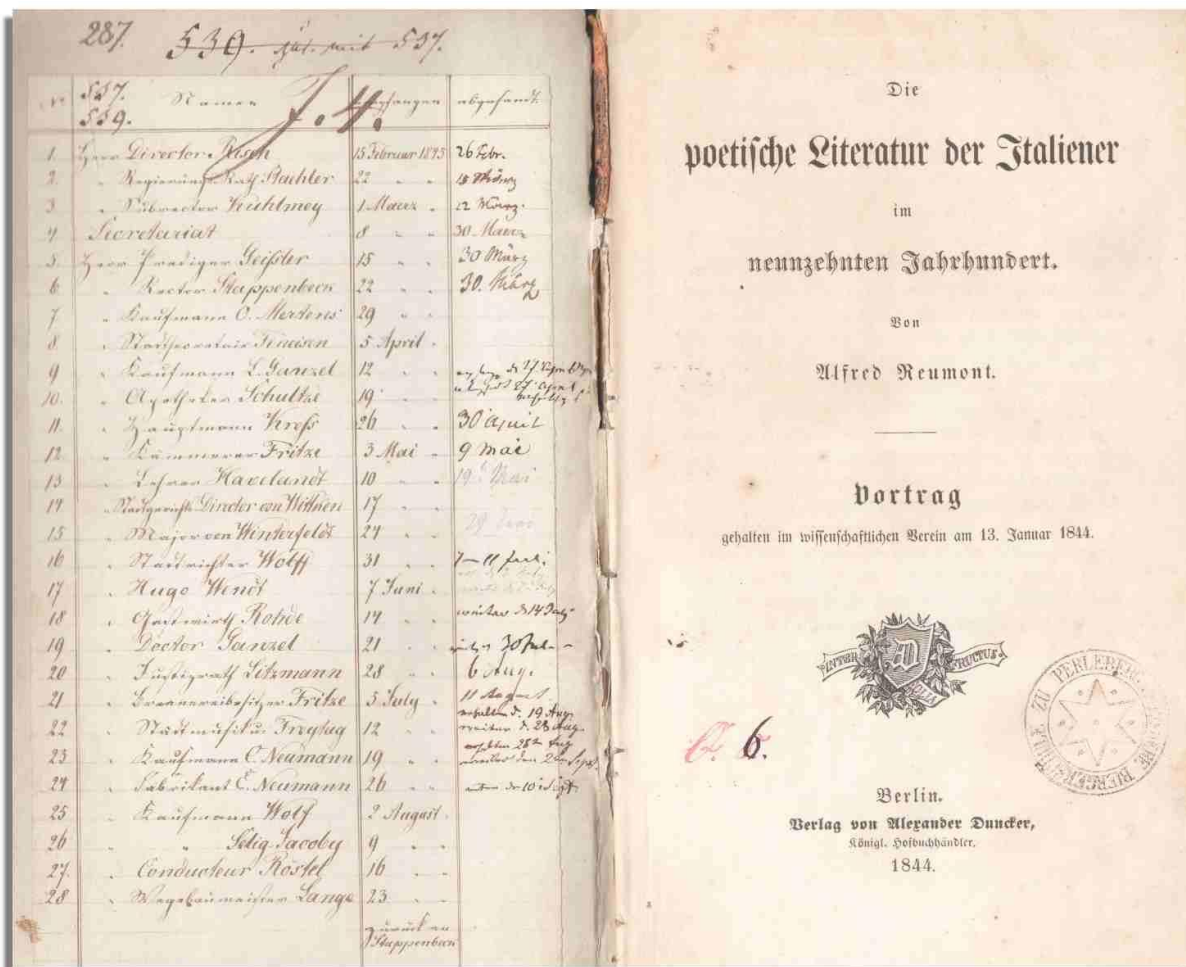 287.
539. zus. mit 537.
537.
539.
Namen empfangen abgesandt.
1. Herr Director Risch 15 Februar 1845 26 Febr.
2. " Regierungs Rath Staehler 22 " " 15 März
3. " Subrector Kuhlmey 1 Maerz " 12 März.
4. Secretariat 8 " " 30 Maerz
5. Herr Prediger Geißler 15 " " 30 März
6. " Rector Stappenbeck 22 " " 30. März
7 " Kaufmann O. Mertens 29 " "
8. " Stadtsecretair 5 April "
9 " Kaufmann L. Ganzel 12 " "
10. " Apotheker Schultze 19 " "
11. " Hauptmann Kreß 26 " " 30 April
12 " Kämmerer Fritze 3 Mai " 9 Mai
13 " Lehrer Havelandt 10 " " 19 Mai
14 " Stadtgerichts Director von 17 " "
15 " Major von Winterfeldt 24 " " 29 Juni
16 " Stadtrichter Wolff 31 " " 7-11 Juli
17 " Hugo Wendt 7 Juni "
18 " Gastwirth Rohde 14 " " weiter d 14 July
19 " Doctor Ganzel 21 " "
20 " Justizrath Litzmann 28 " " 6 Aug.
21 " Brennereibesitzer Fritze 5 July " 11 August
22 " Stadtmusikus Freytag 12 " " erhalten d. 19 Aug. weiter d. 28 Aug.
23 " Kaufmann C. Neumann 19 " "
24 " Fabrikant C. Neumann 26 " "
25 " Kaufmann Wolf 2 August "
26 " " Selig Jacoby 9 " "
27. " Conducteur Röstel 16 " "
28 " Wegebaumeister Lange 23 " "
zurück an
Stappenbeck
Die
poetische Literatur der Italiener
im
neunzehnten Jahrhundert.
Von
Alfred Reumont.
Vortrag
gehalten im wissenschaftlichen Verein am 13. Januar 1844.
INTER FOLIA FRUCTUS
D
6.
ZU PERLEBERG
BÜRGERSCHULE
Berlin.
Verlag von Alexander Duncker,
Königl. Hofbuchhändler.
1844.